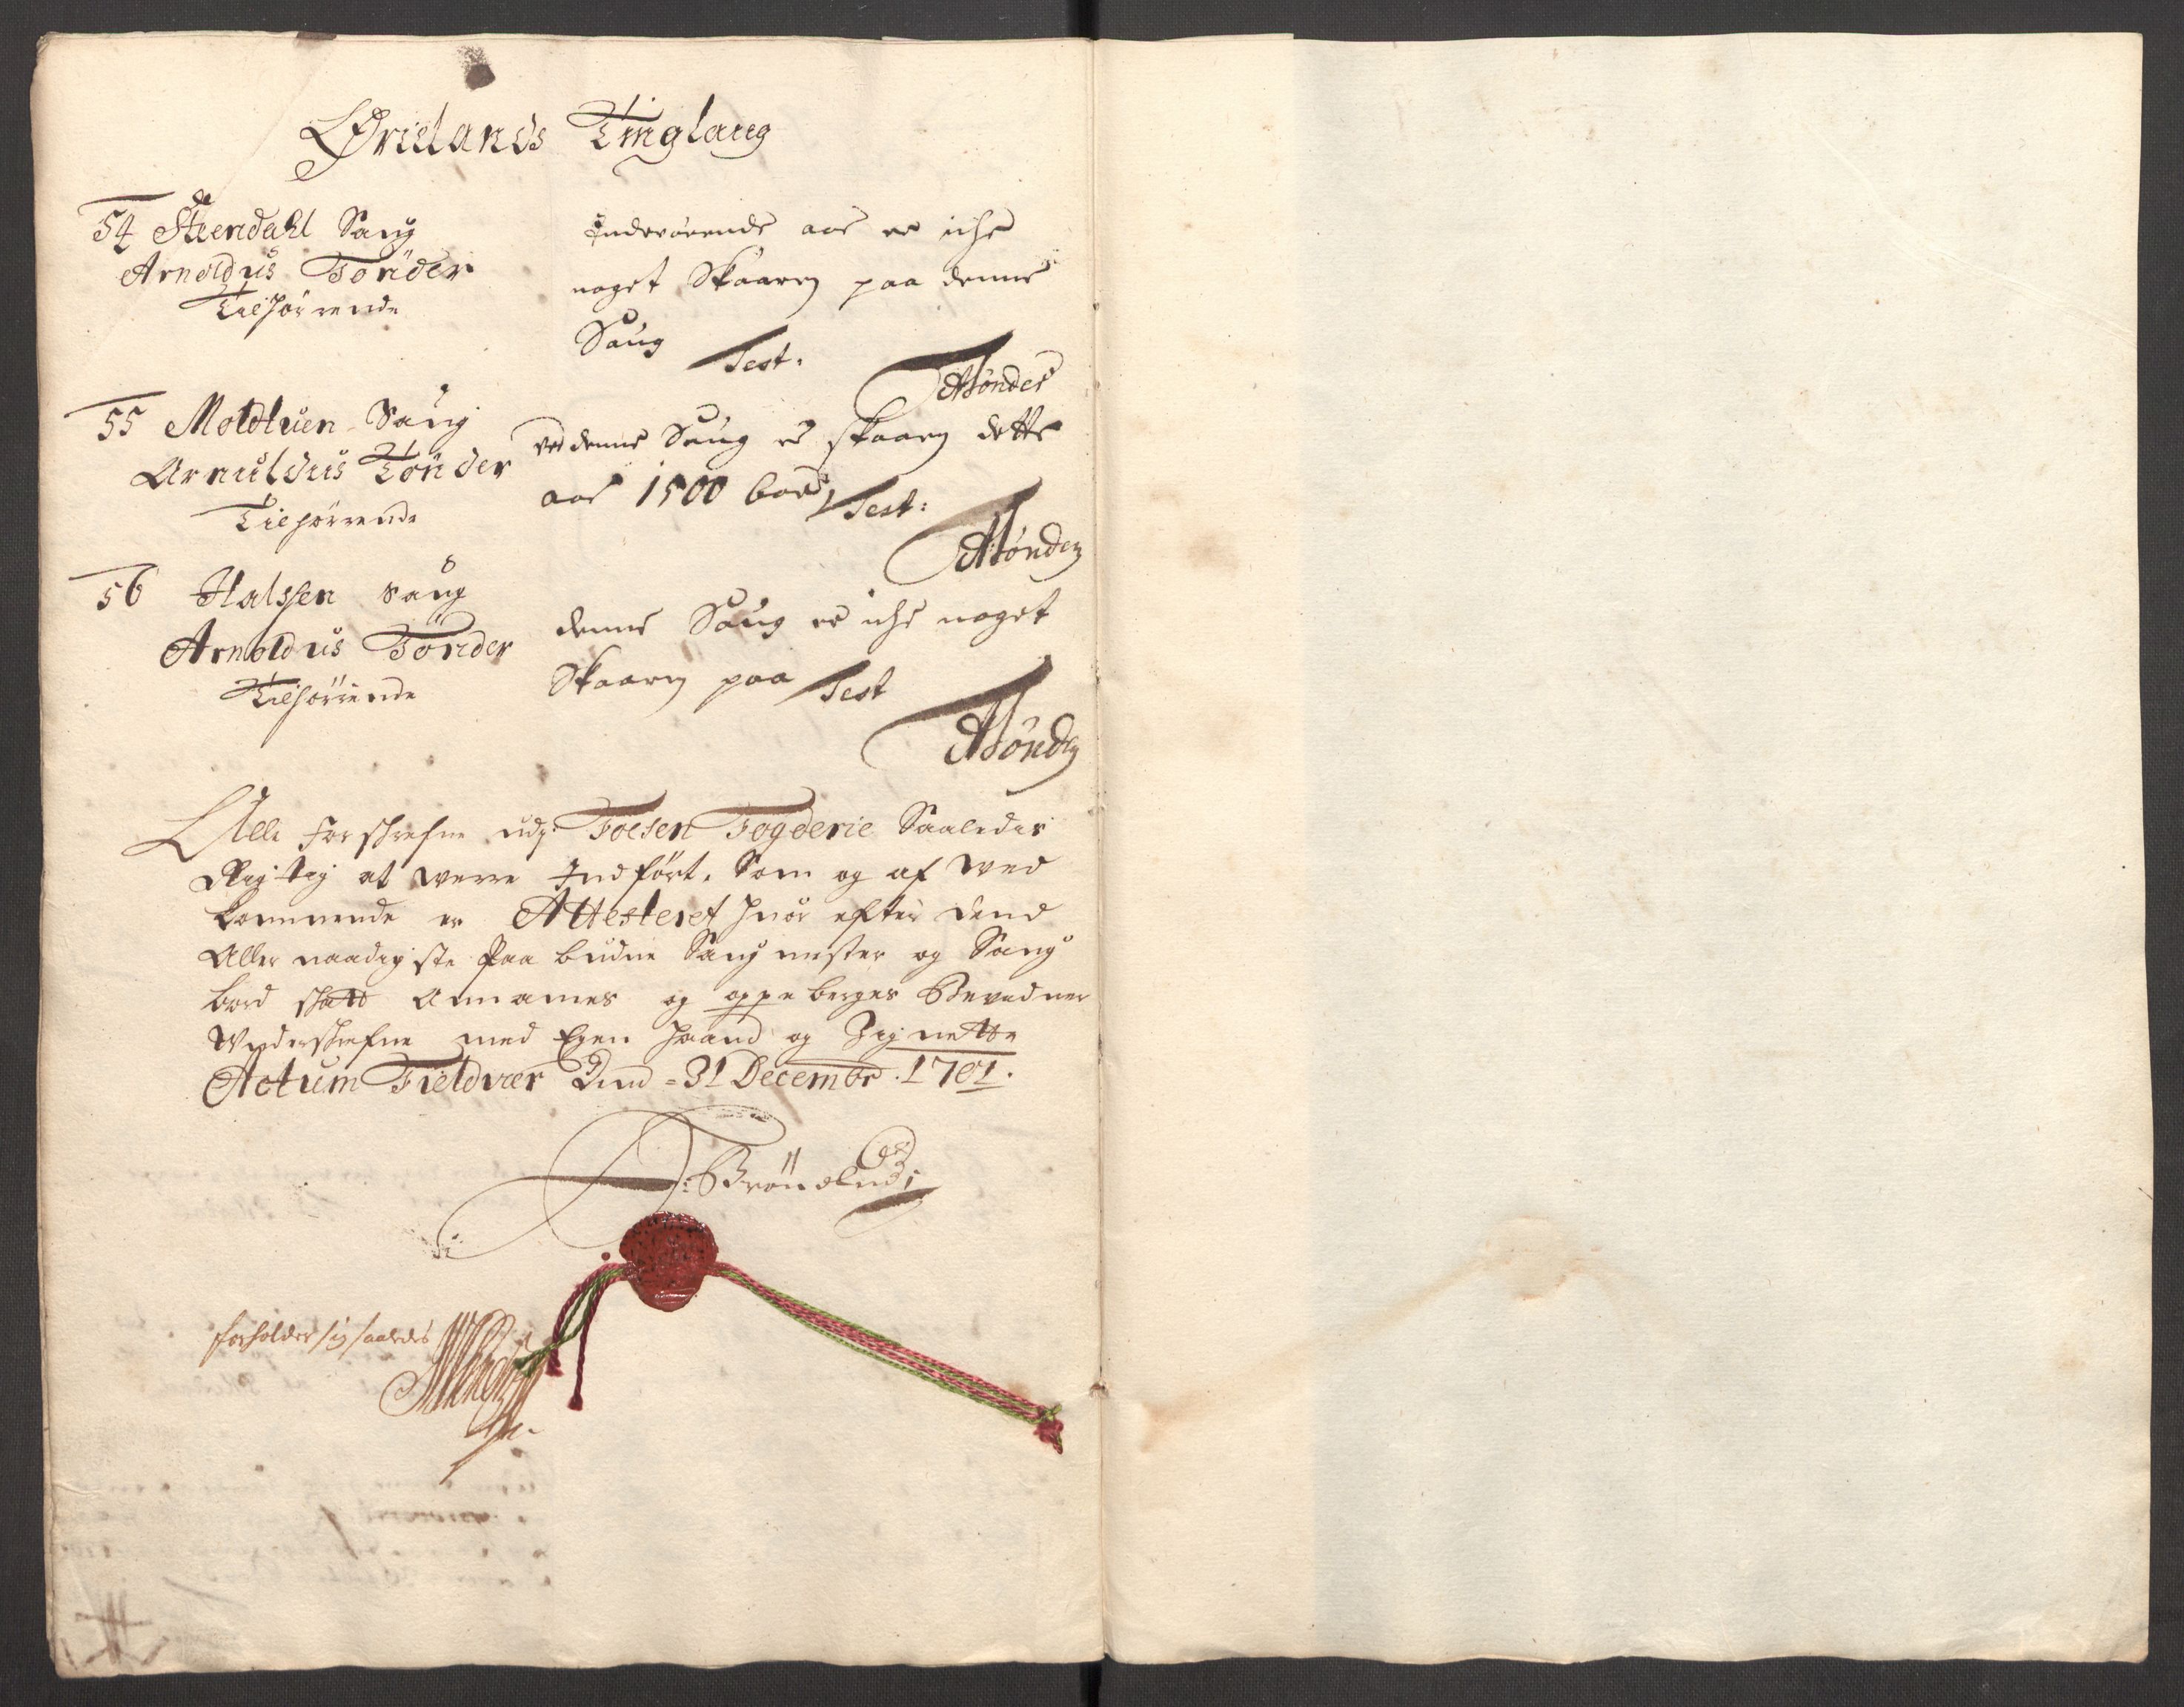 Ørielands Tinglaug
54 Steendahl Saug
Arnoldus Tönder
Tilhörrende
Indeværende aar er iche
noget Skaaren paa denne
Saug Test:
ATönder
55 Moldtuen Saug
Arnuldus Tönder
Tilhörrende
ved denne Saug er skaaren dette
aar 1500 bord, Test:
ATönder
56 Halssen Saug
Arnoldus Tönder
Tilhörrende
denne Saug er iche noget
Skaaren paa Test
ATönder
Alle forschrefne udj Foesen Fogderie Saaledes
Rigtig at werre Indfört, Som og af wed
kommende er Attesteret huor efter dend
Aller naadigste Paa budne Saug mester og Saug
bord schatt Annames og oppeberges Bevidner
Underschrefne med Egen Haand og Zignette
Actum Fieldvær Dend = 31 Decembr. 1701.
Bröndlund
forholder sig saaledes